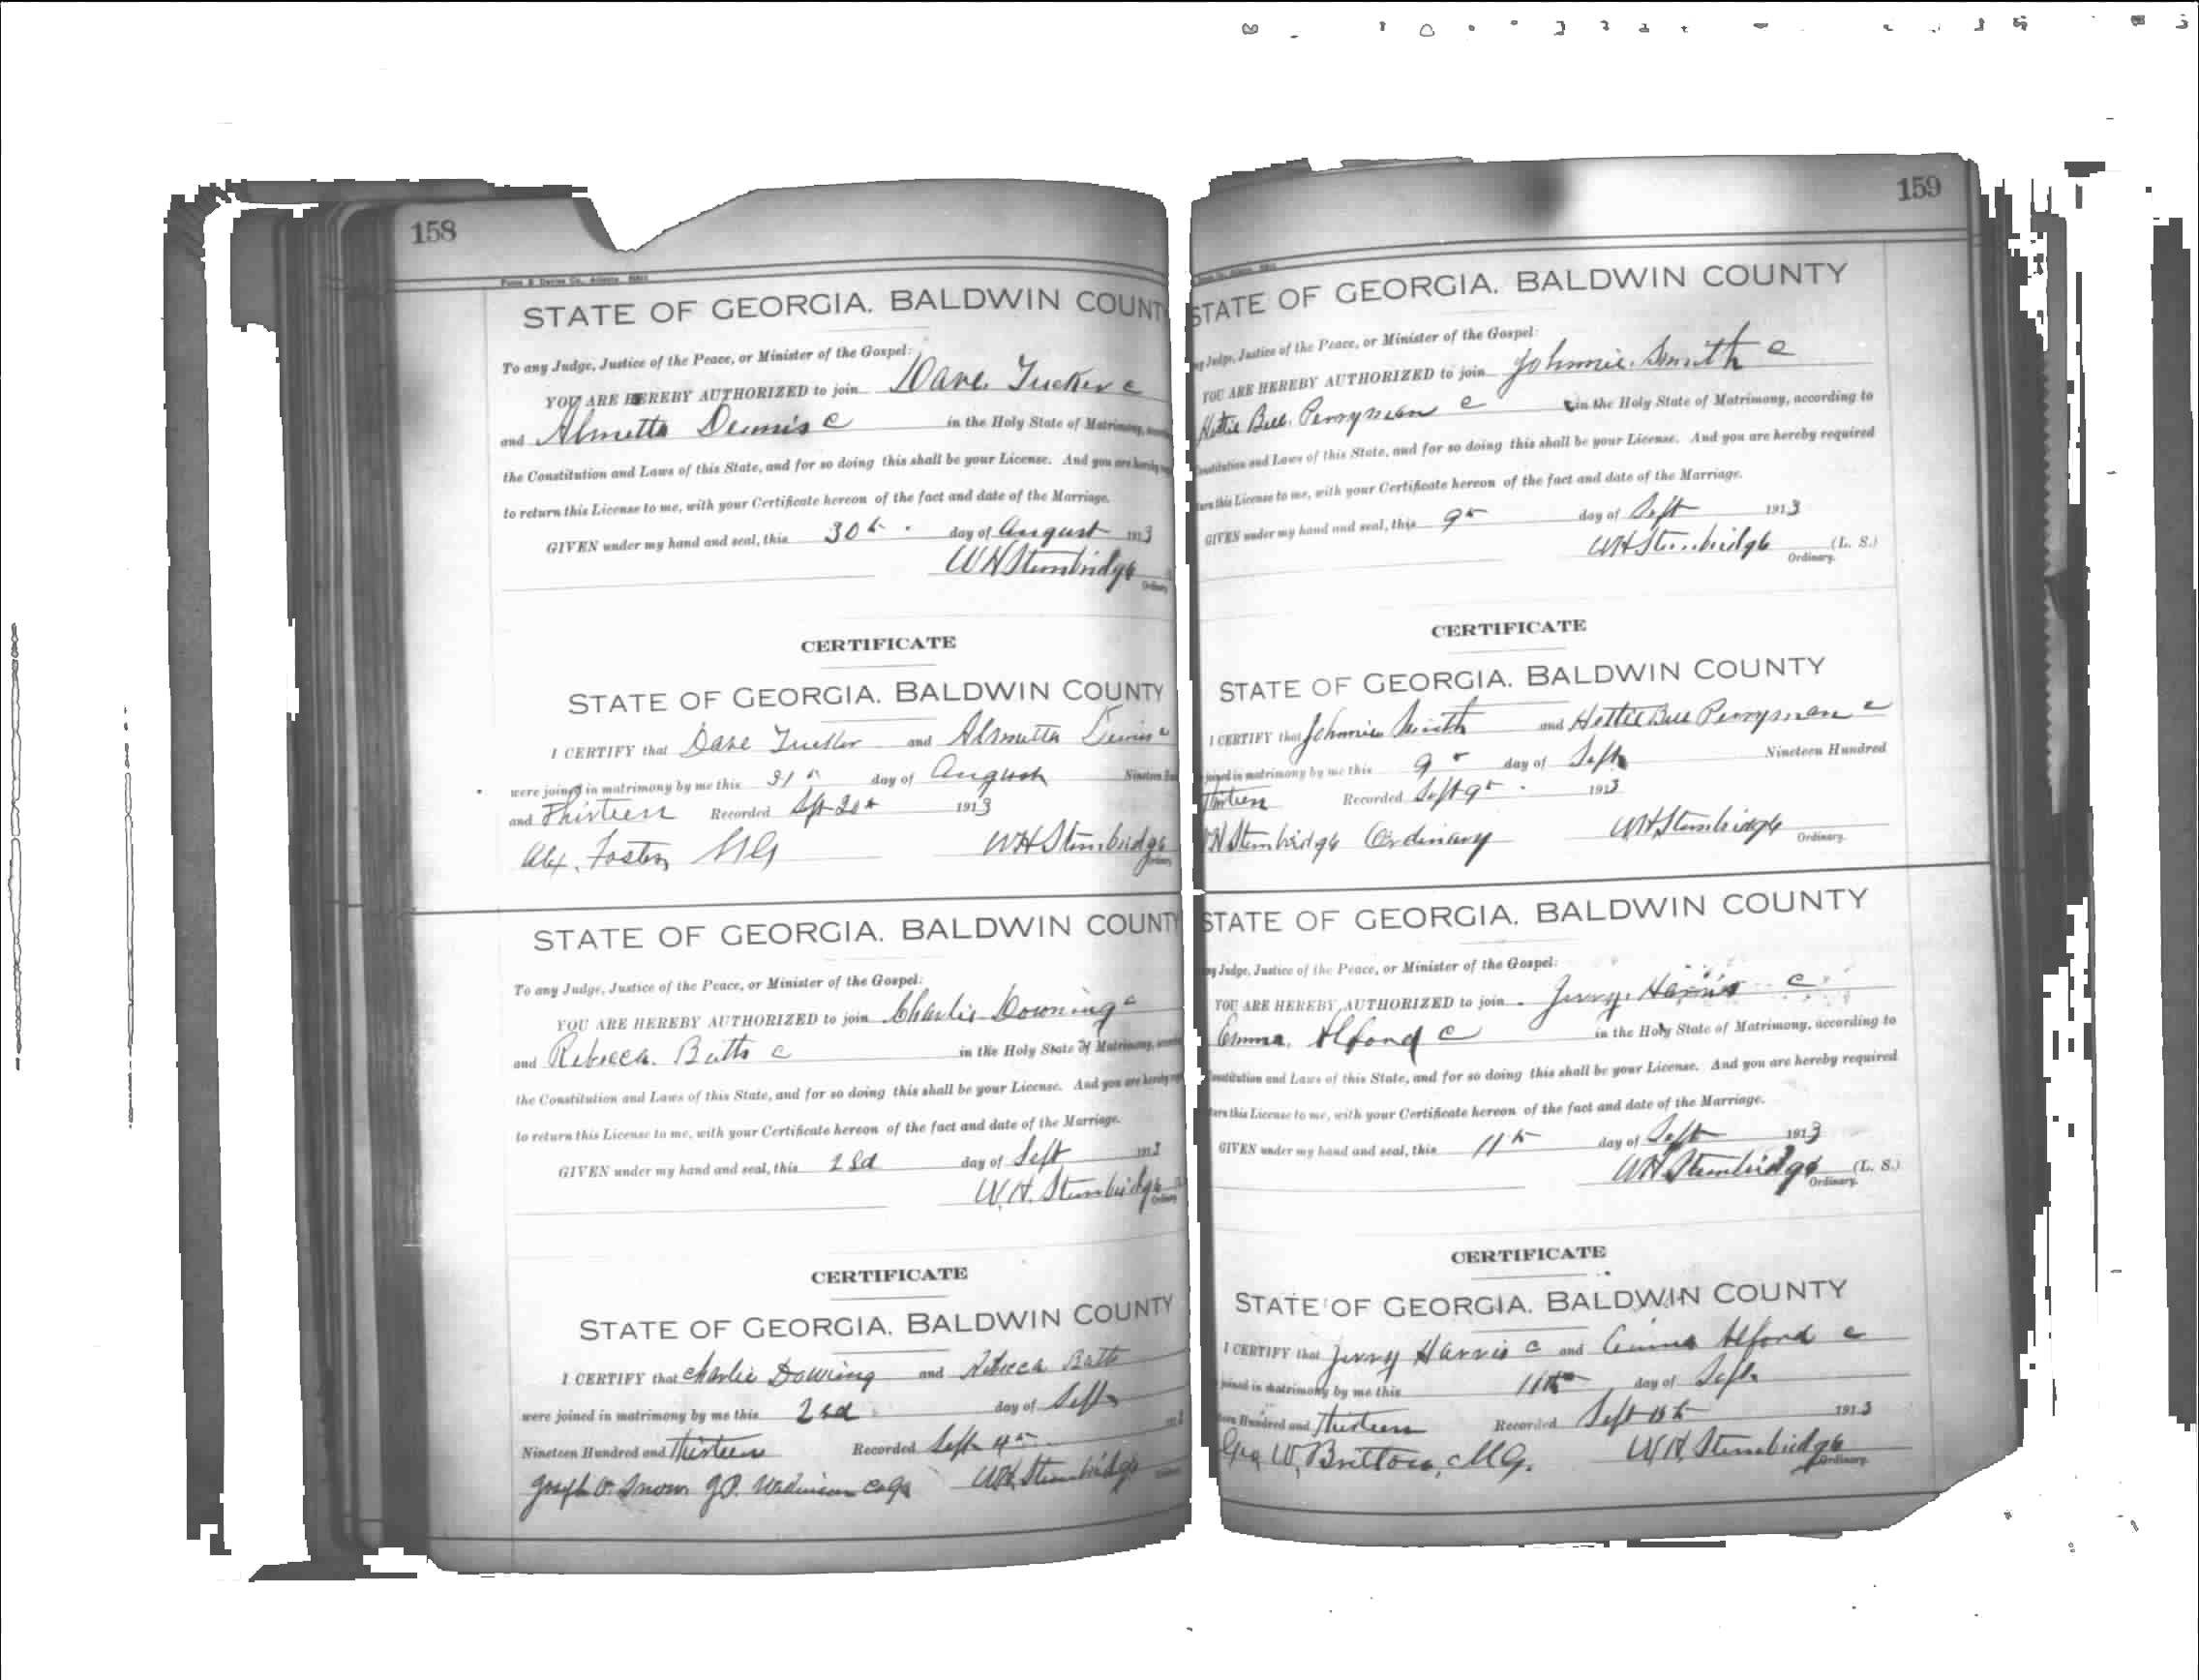 158
STATE OF GEORGIA. BALDWIN COUNT
To any Judge, Justice of the Peace, or Minister of the Gospel:
YOU ARE HEREBY AUTHORIZED to join Dave Tucker c
and Almetta Dennis c in the Holy State of Matrimony,
the Constitution and Laws of this State, and for so doing this shall be your License. And you are hereby
to return this License to me, with your Certificate hereon of the fact and date of the Marriage.
GIVEN under my hand and seal, this 30th day of August 1913
WH Stembridge
Ordinary
CERTIFICATE
STATE OF GEORGIA. BALDWIN COUNTY
I CERTIFY that Dave Tucker and Almetta Dennis c
were joined in matrimony by me this 31st day of August Nineteen
and Thirteen Recorded Sept 1913
Alex. Foster MG WH Stembridge
Ordinary
STATE OF GEORGIA. BALDWIN COUNTY
To any Judge, Justice of the Peace, or Minister of the Gospel:
YOU ARE HEREBY AUTHORIZED to join Charlie Downing c
and Rebecca Batts c in the Holy State of Matrimony,
the Constitution and Laws of this State, and for so doing this shall be your License. And you are hereby
to return this License to me, with your Certificate hereon of the fact and date of the Marriage.
GIVEN under my hand and seal, this 2nd day of Sept 1913
W.H. Stembridge
Ordinary
CERTIFICATE
STATE OF GEORGIA. BALDWIN COUNTY
I CERTIFY that Charlie Downing and Rebecca Batts
were joined in matrimony by me this 2nd day of Sept
Nineteen Hundred and Thirteen Recorded Sept 4th
Joseph Snow J.P. WH Stembridge
159
STATE OF GEORGIA. BALDWIN COUNTY
Judge, Justice of the Peace, or Minister of the Gospel:
YOU ARE HEREBY AUTHORIZED to join Johnnie Smith c
Hettie Bell Perryman c in the Holy State of Matrimony, according to
Constitution and Laws of this State, and for so doing this shall be your License. And you are hereby required
this License to me, with your Certificate hereon of the fact and date of the Marriage.
GIVEN under my hand and seal, this 9th day of Sept 1913
WH Stembridge (L. S.)
Ordinary.
CERTIFICATE
STATE OF GEORGIA. BALDWIN COUNTY
I CERTIFY that Johnnie Smith and Hettie Bell Perryman c
joined in matrimony by me this 9th day of Sept Nineteen Hundred
Thirteen Recorded Sept 9th 1913
WH Stembridge Ordinary WH Stembridge
Ordinary.
STATE OF GEORGIA. BALDWIN COUNTY
Judge, Justice of the Peace, or Minister of the Gospel:
YOU ARE HEREBY AUTHORIZED to join Jerry Harris c
Emma Alford c in the Holy State of Matrimony, according to
Constitution and Laws of this State, and for so doing this shall be your License. And you are hereby required
this License to me, with your Certificate hereon of the fact and date of the Marriage.
GIVEN under my hand and seal, this 11th day of Sept 1913
WH Stembridge (L. S.)
Ordinary.
CERTIFICATE
STATE OF GEORGIA. BALDWIN COUNTY
I CERTIFY that Jerry Harris c and Emma Alford c
joined in matrimony by me this 11th day of Sept
Hundred and Thirteen Recorded Sept 1913
Geo W. Britton, M.G. W.H. Stembridge
Ordinary.